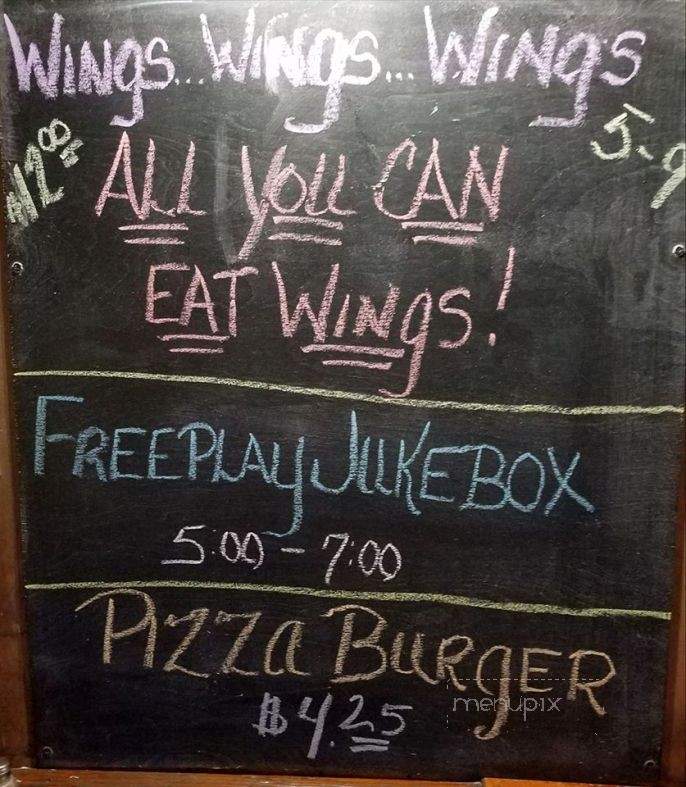 Wings...Wings...Wings
$12.00
5-9
All You CAN
EAT Wings!
FREEPLAY JUKEBOX
5:00 - 7:00
PizzA BuRgER
$4.25
menupix